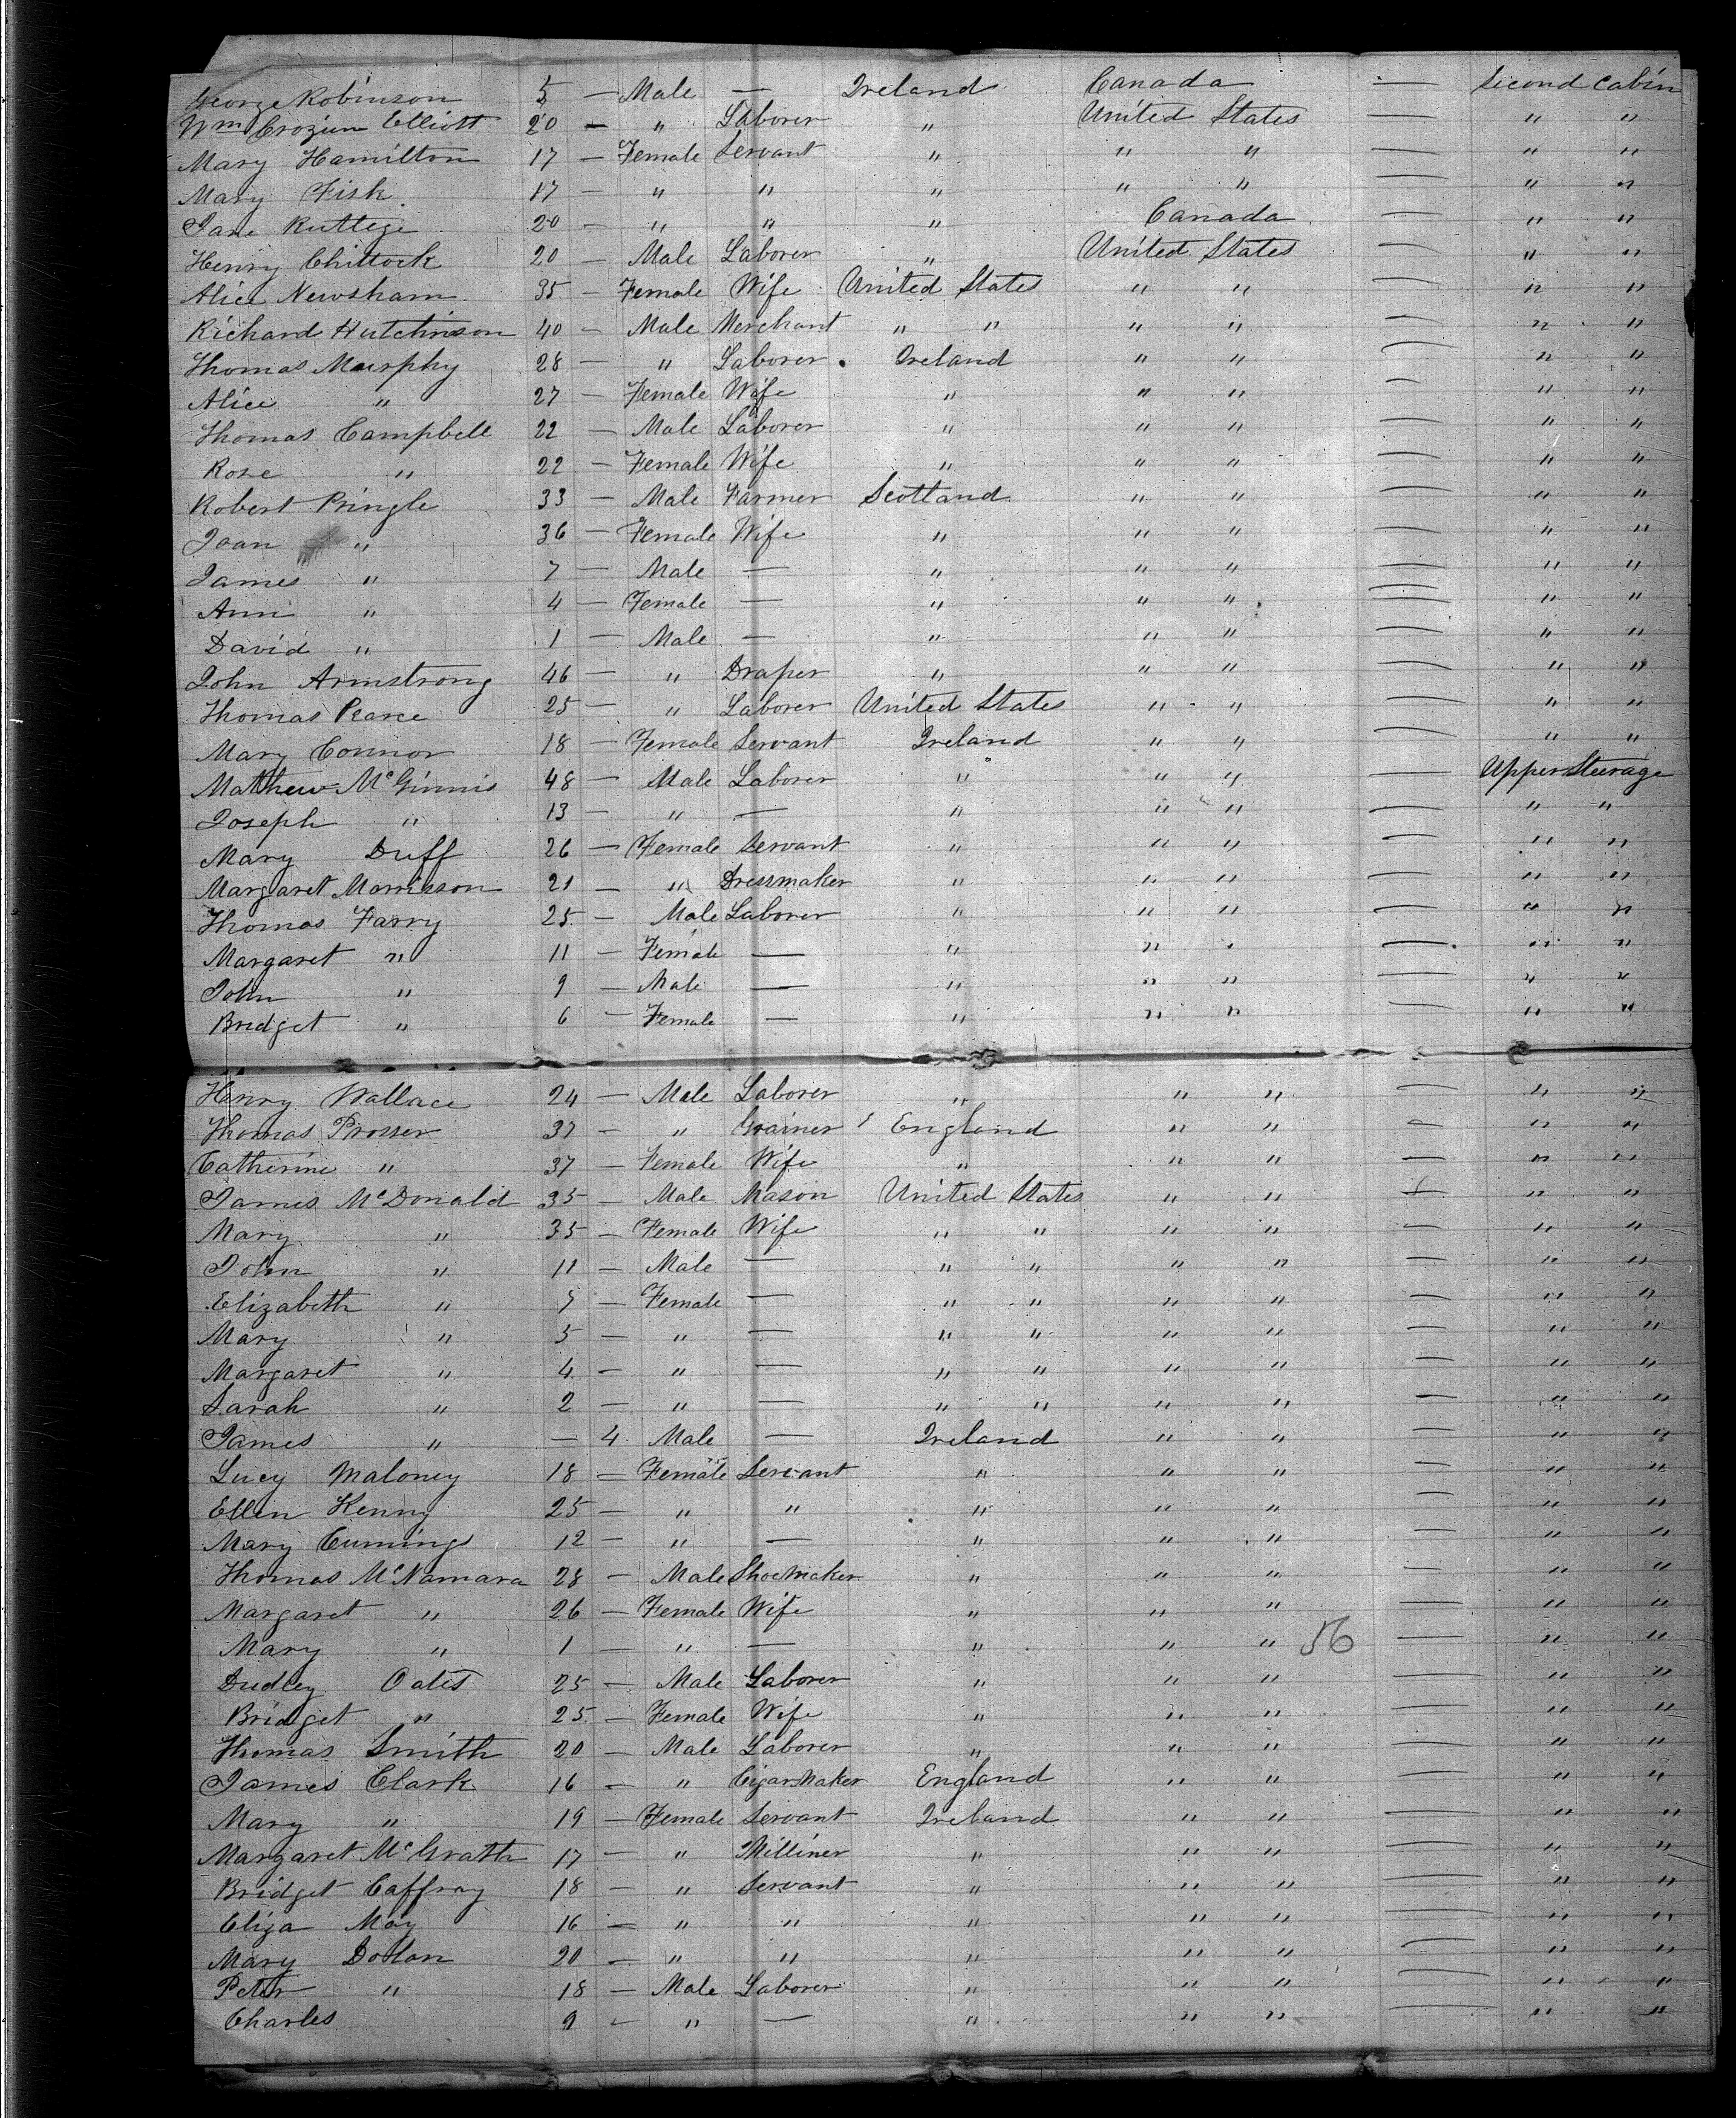 George Robinson 5 — Male — Ireland Canada — Second Cabin
Wm Crozien Elliott 20 — " Laborer " United States — " "
Mary Hamilton 17 — Female Servant " " " — " "
Mary Fisk 17 — " " " " " — " "
Jane Ruttege 20 — " " " Canada — " "
Henry Chittock 20 — Male Laborer " United States — " "
Alice Newsham 35 — Female Wife United States " " — " "
Richard Hutchinson 40 — Male Merchant " " " " — " "
Thomas Murphy 28 — " Laborer Ireland " " — " "
Alice " 27 — Female Wife " " " — " "
Thomas Campbell 22 — Male Laborer " " " — " "
Rose " 22 — Female Wife " " " — " "
Robert Pringle 33 — Male Farmer Scotland " " — " "
Joan " 36 — Female Wife " " " — " "
James " 7 — Male — " " " — " "
Ann " 4 — Female — " " " — " "
David " 1 — Male — " " " — " "
John Armstrong 46 — " Draper " " " — " "
Thomas Pearce 25 — " Laborer United States " " — " "
Mary Connor 18 — Female Servant Ireland " " — " "
Mathew McGinnis 48 — Male Laborer " " " — Upper Steerage
Joseph " 13 — " — " " " — " "
Mary Duff 26 — Female Servant " " " — " "
Margaret Morrisson 21 — " Dressmaker " " " — " "
Thomas Farry 25 — Male Laborer " " " — " "
Margaret " 11 — Female — " " " — " "
John " 9 — Male — " " " — " "
Bridget " 6 — Female — " " " — " "
Henry Wallace 24 — Male Laborer " " " — " "
Thomas Prosser 37 — " Grainer England " " — " "
Catherine " 37 — Female Wife " " " — " "
James McDonald 35 — Male Mason United States " " — " "
Mary " 35 — Female Wife " " " " — " "
John " 11 — Male — " " " " — " "
Elizabeth " 7 — Female — " " " " — " "
Mary " 5 — " — " " " " — " "
Margaret " 4 — " — " " " " — " "
Sarah " 2 — " — " " " " — " "
James " — 4 Male — Ireland " " — " "
Lucy Maloney 18 — Female Servant " " " — " "
Ellen Kenny 25 — " " " " " — " "
Mary Cumings 12 — " — " " " — " "
Thomas McNamara 28 — Male Shoemaker " " " — " "
Margaret " 26 — Female Wife " " " — " "
Mary " 1 — " — " " " 56 — " "
Dudley Oates 25 — Male Laborer " " " — " "
Bridget " 25 — Female Wife " " " — " "
Thomas Smith 20 — Male Laborer " " " — " "
James Clark 16 — " Cigar Maker England " " — " "
Mary " 19 — Female Servant Ireland " " — " "
Margaret McGrath 17 — " Milliner " " " — " "
Bridget Caffray 18 — " Servant " " " — " "
Eliza May 16 — " " " " " — " "
Mary Dolan 20 — " " " " " — " "
Peter " 18 — Male Laborer " " " — " "
Charles 9 — " — " " " — " "